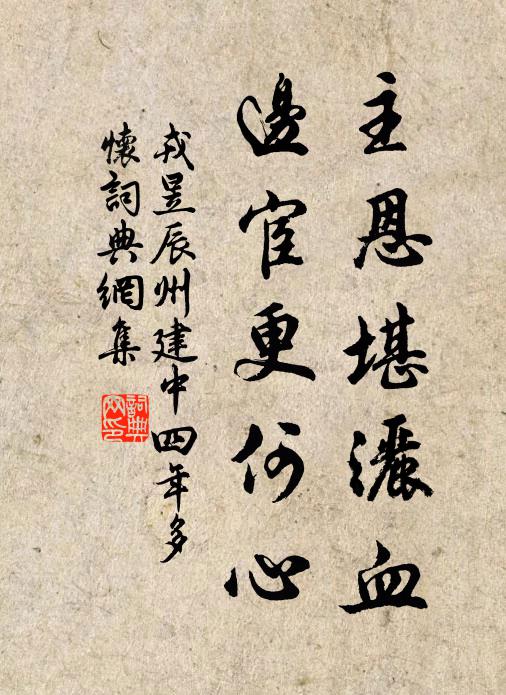 主恩堪灑血
邊宦更何心
戎昱辰州建中四年多
懷詞典網集
詞典網印